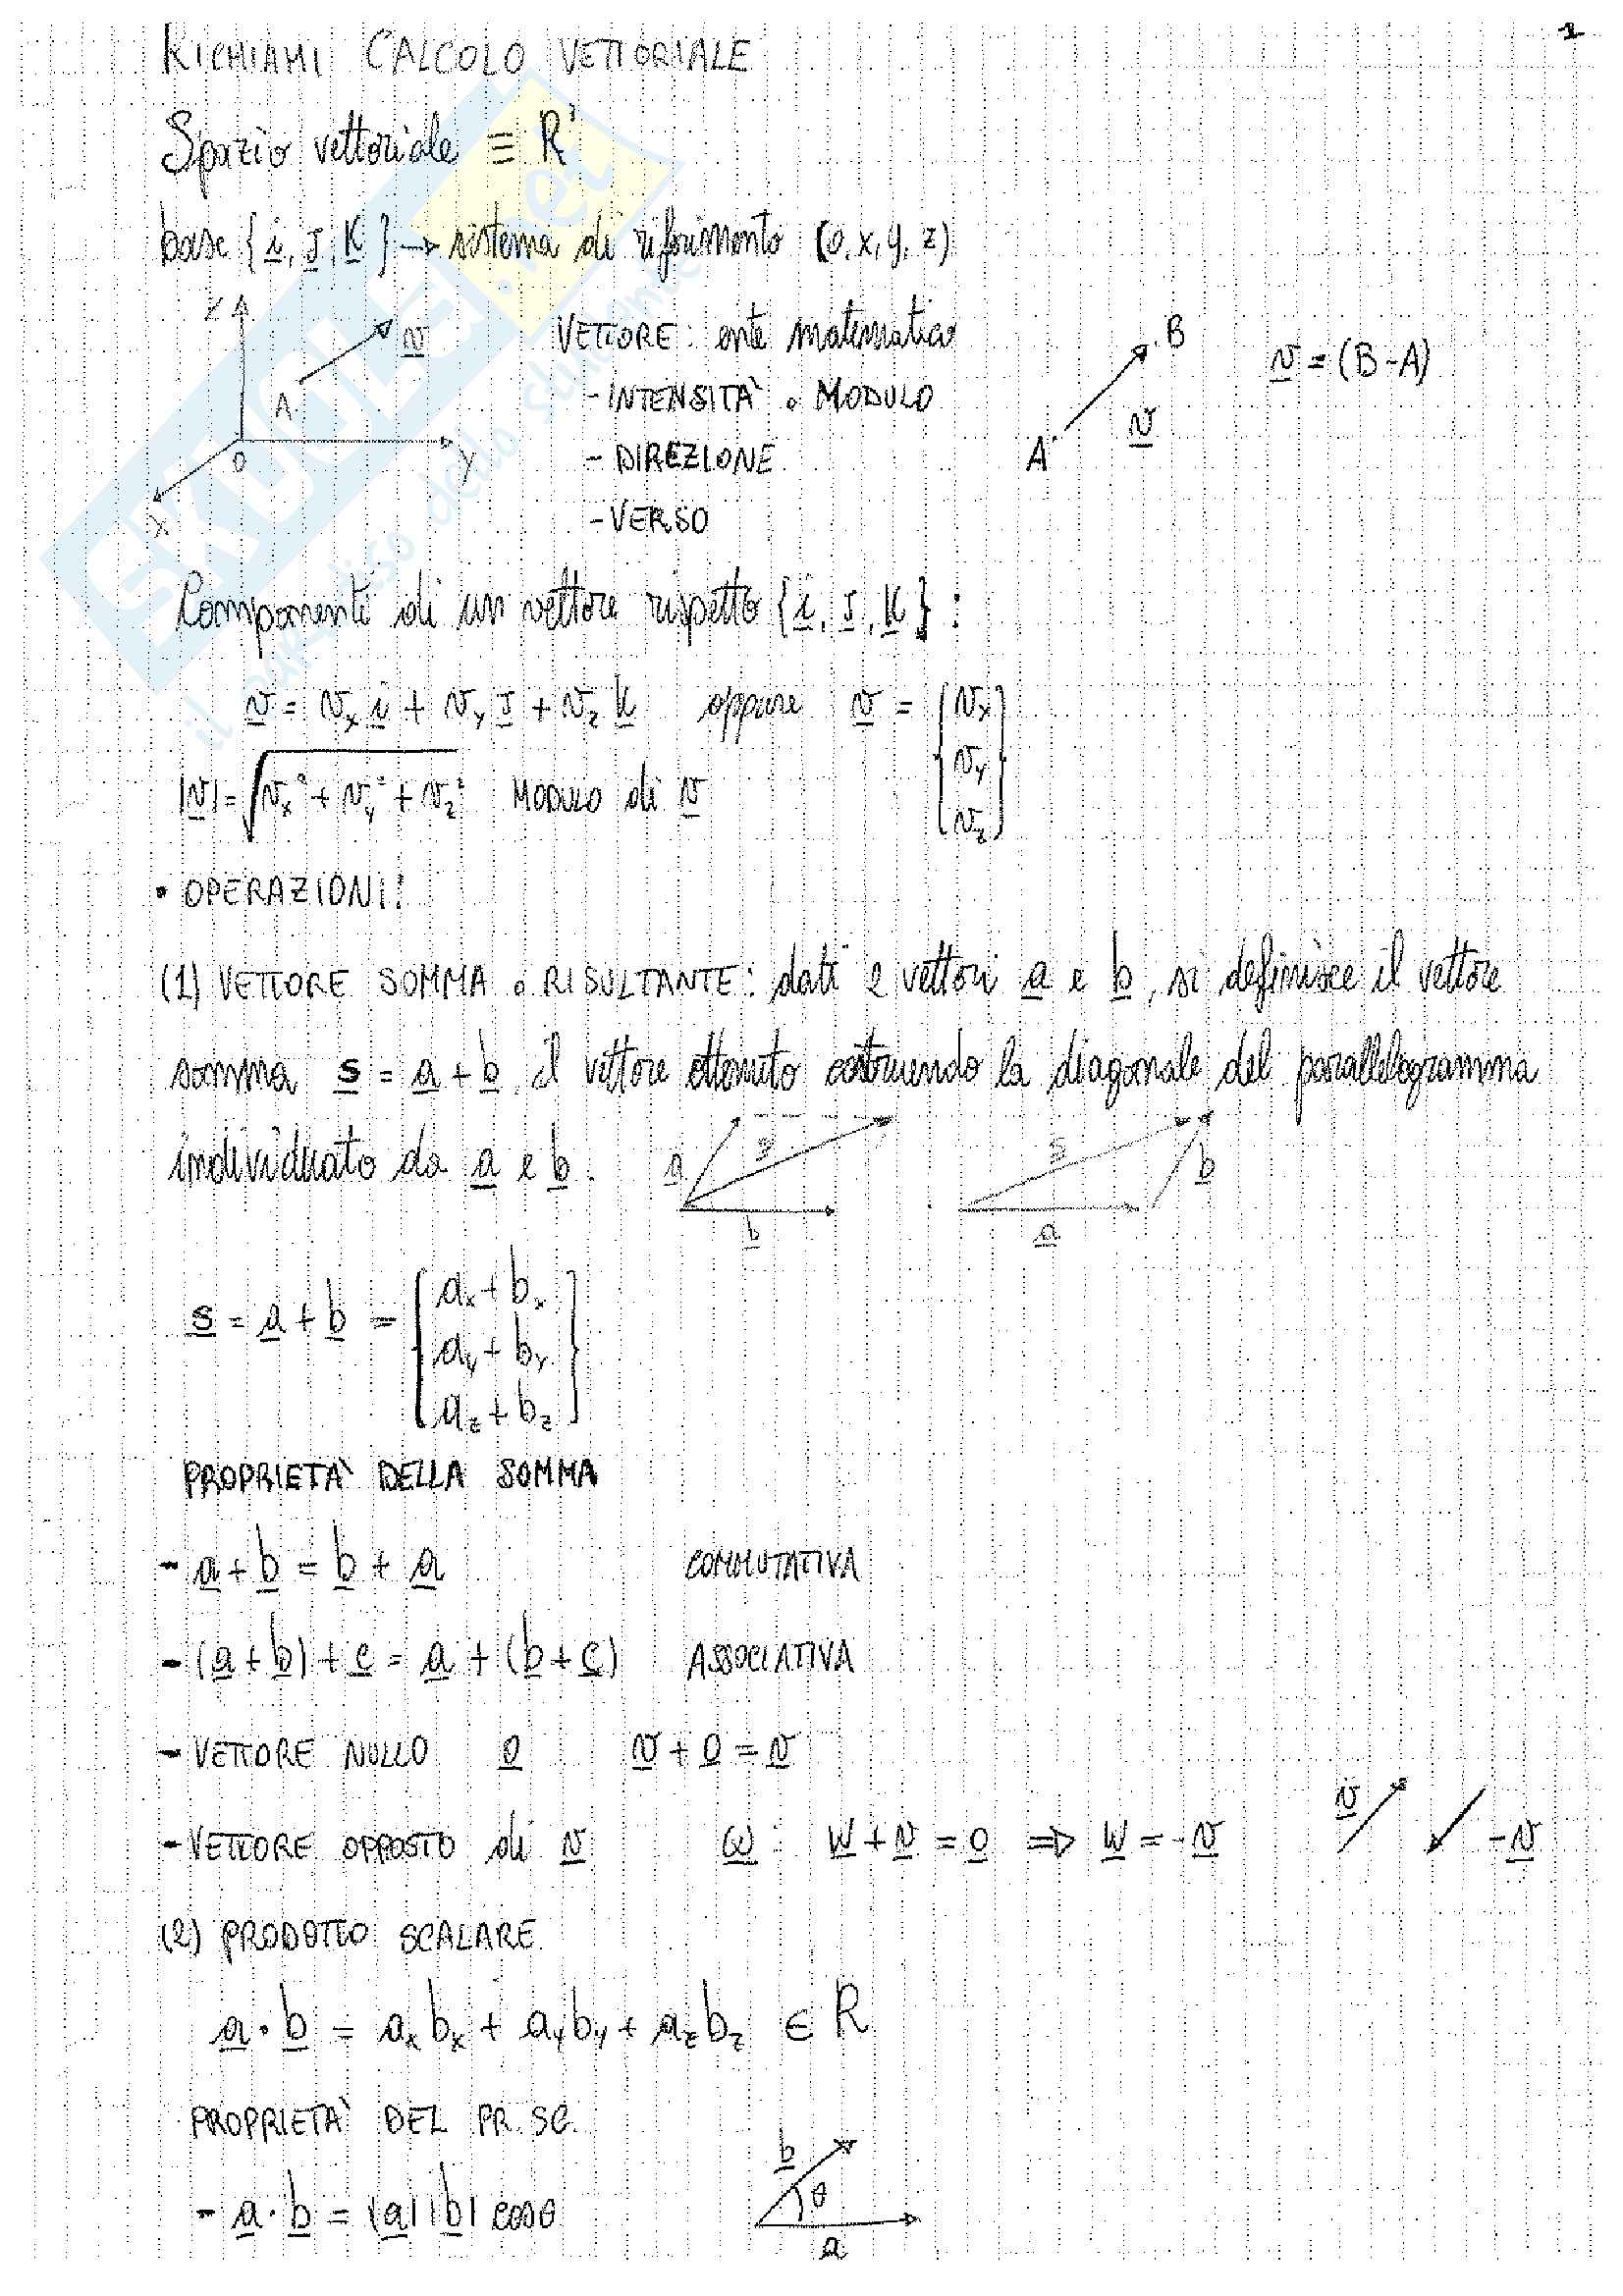 1
RICHIAMI CALCOLO VETTORIALE
Spazio vettoriale ≡ R³
base {i, J, K} → sistema di riferimento (O, x, y, z)
Z
v
A
O
Y
X
VETTORE: ente matematico
- INTENSITÀ o MODULO
- DIREZIONE
- VERSO
B
A
v
v = (B-A)
Componenti di un vettore rispetto {i, J, K}:
v = vx i + vy J + vz K oppure v = {vx
vy
vz}
|v| = √(vx² + vy² + vz²) MODULO di v
• OPERAZIONI:
(1) VETTORE SOMMA o RISULTANTE: dati 2 vettori a e b, si definisce il vettore
somma s = a + b il vettore ottenuto costruendo la diagonale del parallelogramma
individuato da a e b.
a
s
b
s
b
a
s = a + b = {ax + bx
ay + by
az + bz}
PROPRIETÀ DELLA SOMMA
- a + b = b + a COMMUTATIVA
- (a + b) + c = a + (b + c) ASSOCIATIVA
- VETTORE NULLO 0 v + 0 = v
- VETTORE OPPOSTO di v ω: w + v = 0 ⇒ w = -v
v
-v
(2) PRODOTTO SCALARE
a · b = ax bx + ay by + az bz ∈ R
PROPRIETÀ DEL PR. SC.
- a · b = |a| |b| cosθ
b
θ
a
SKUOLA.net
il paradiso dello studente